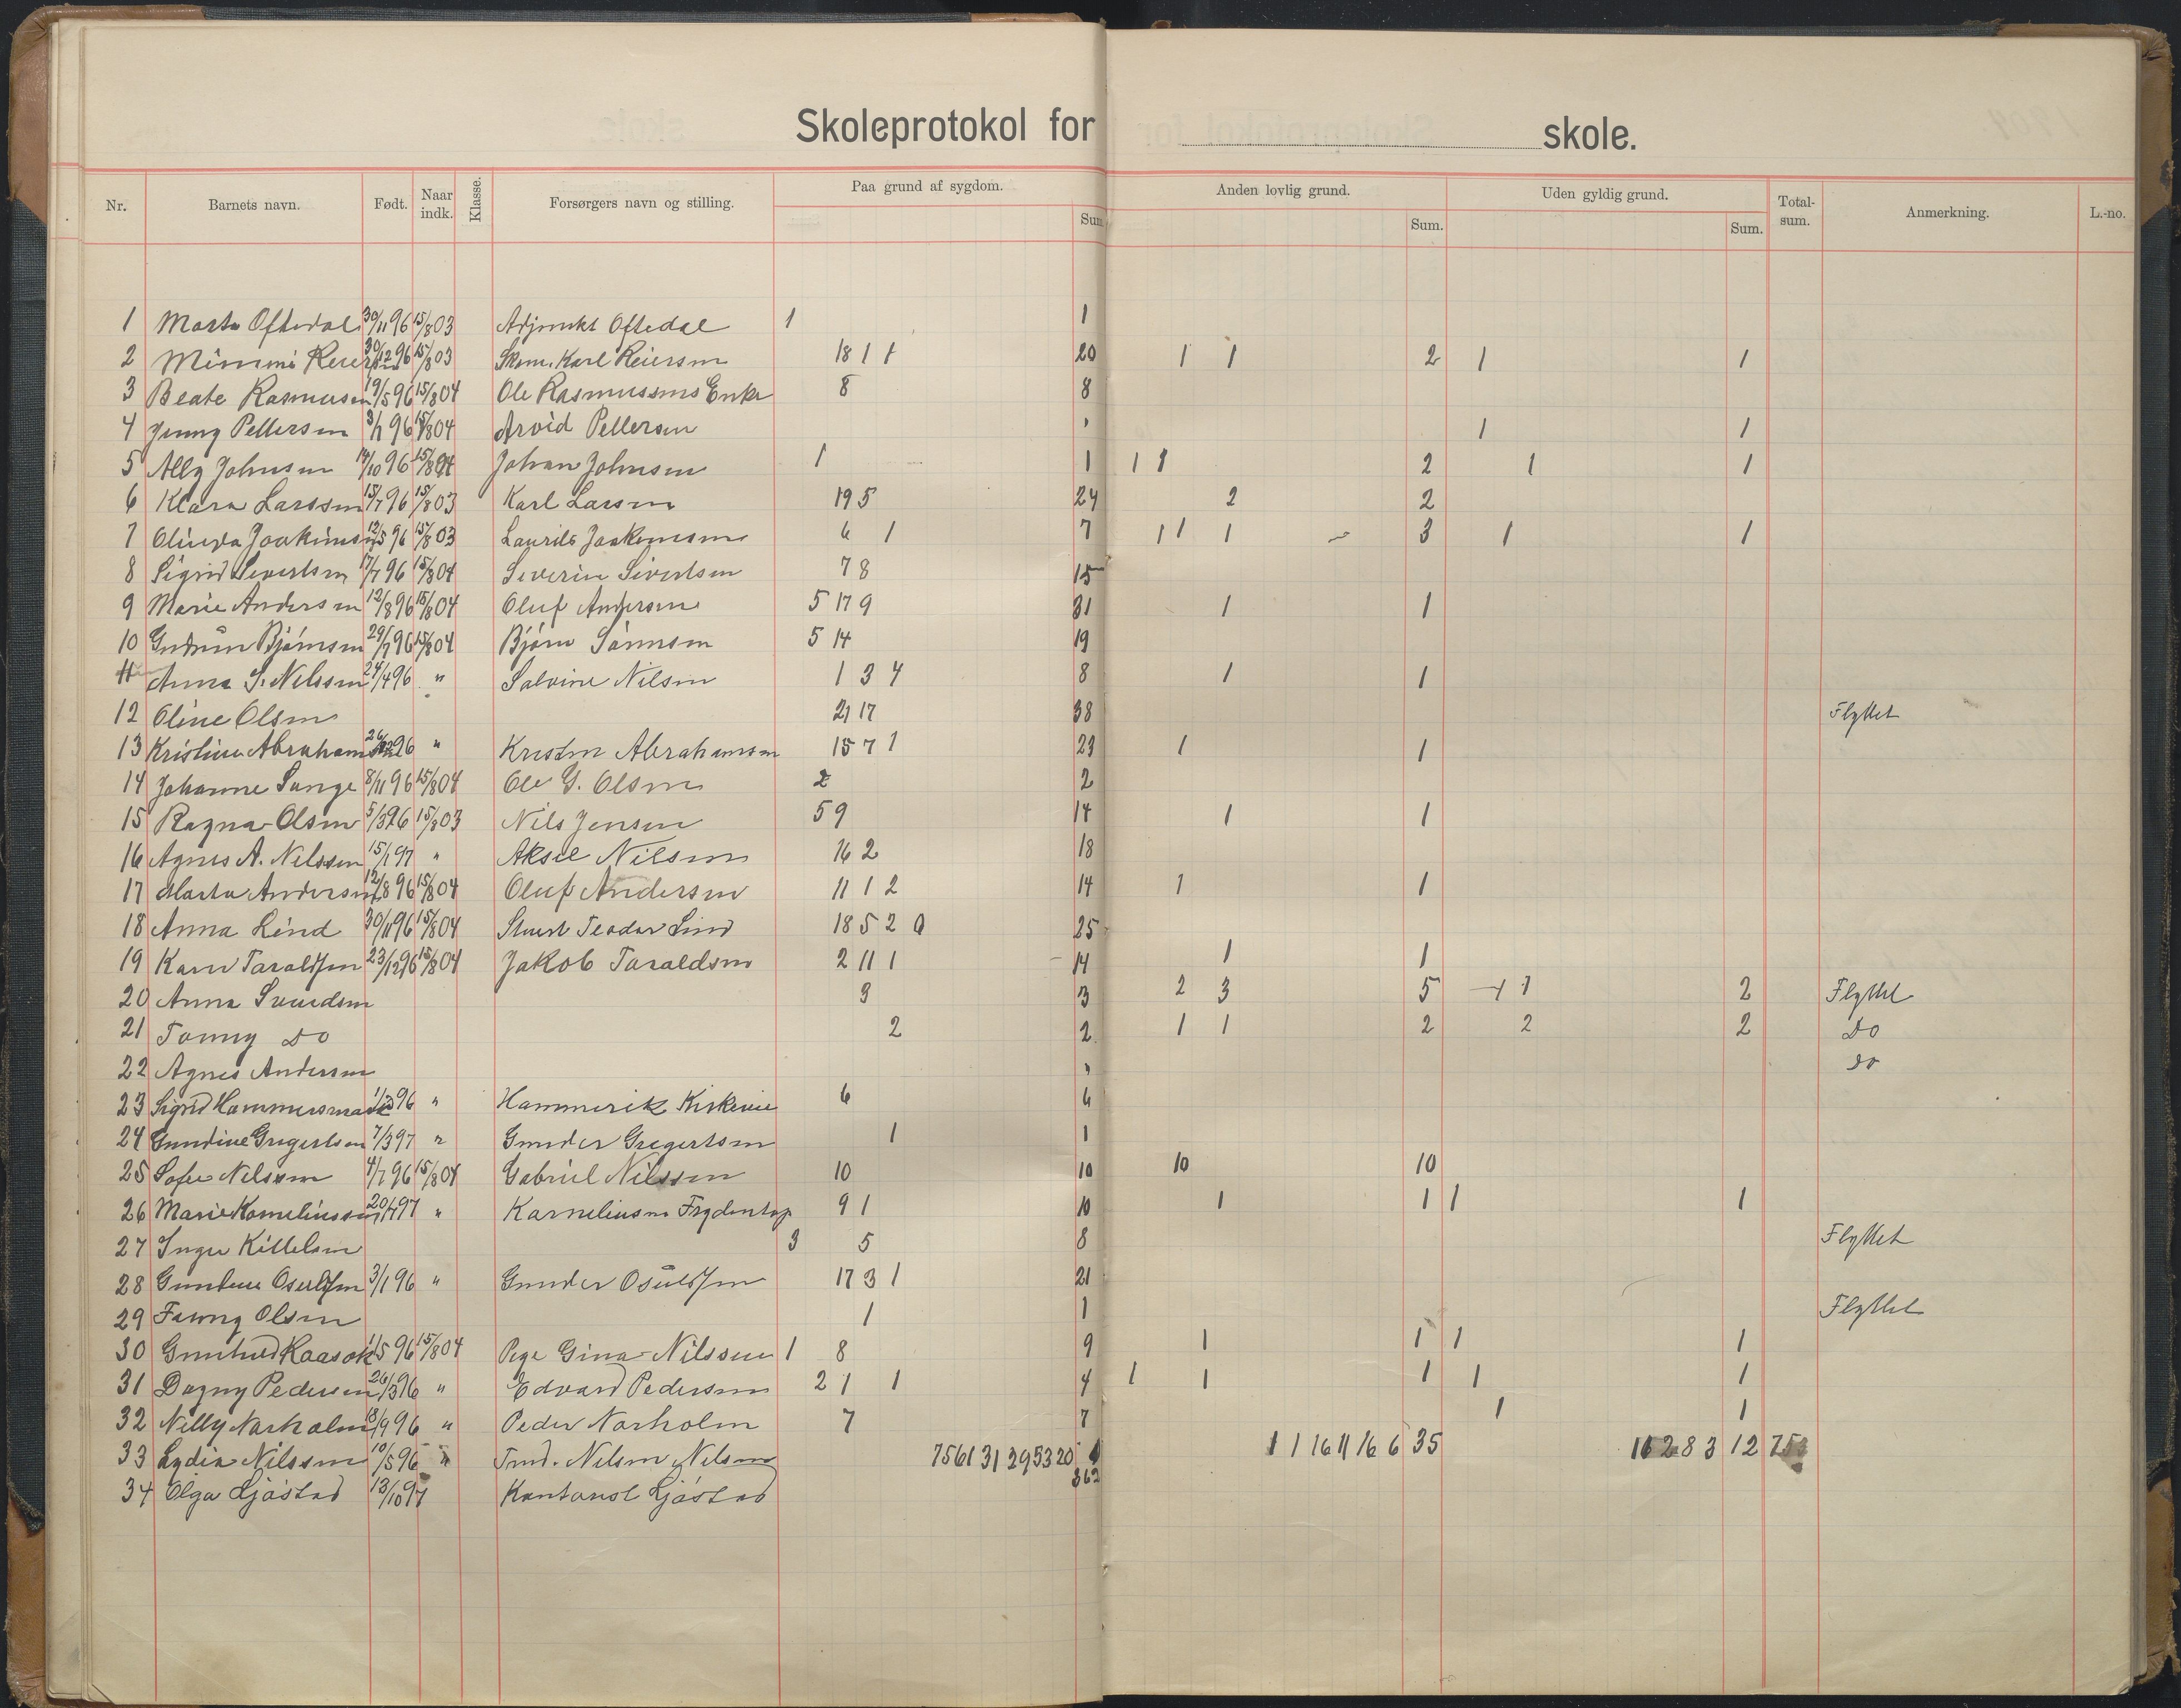 Skoleprotokol for skole.
Nr. Barnets navn. Født. Naar indk. Klasse. Forsørgers navn og stilling. Paa grund af sygdom. Sum Anden lovlig grund. Sum. Uden gyldig grund. Sum. Total-sum. Anmerkning. L.-no.
1 Marta Oftedal 30/11 96 15/8 03 Adjunkt Oftedal 1 1
2 Mimmi Reiersen 30/12 96 15/8 03 Karl Reiersen 18 1 1 20 1 1 2 1 1
3 Beate Rasmusen 19/5 96 15/8 04 Ole Rasmussens Enke 8 8
4 Jenny Pettersen 3/1 96 15/8 04 Arvid Pettersen " 1 1
5 Ally Johnsen 14/10 96 15/8 04 Johan Johnsen 1 1 1 1 2 1 1
6 Klara Larssen 15/7 96 15/8 03 Karl Larsen 19 5 24 2 2
7 Olivia Joakimsen 12/5 96 15/8 03 Laurits Joakimsen 6 1 7 1 1 1 3 1 1
8 Sigrid Sivertsen 17/7 96 15/8 04 Severin Sivertsen 7 8 15
9 Marie Andersen 12/8 96 15/8 04 Oluf Andersen 5 17 9 31 1 1
10 Gudrun Bjørnsen 29/7 96 15/8 04 Bjørn Tønnsen 5 14 19
11 Anna S. Nilssen 24/4 96 " Salvine Nilsen 1 3 4 8 1 1
12 Oline Olsen 21 17 38 Flyttet
13 Kristine Abrahamsen 26/12 96 " Kristen Abrahamsen 15 7 1 23 1 1
14 Johanne Lunge 8/11 96 15/8 04 Ole G. Olsen 2 2
15 Ragna Olsen 5/3 96 15/8 03 Nils Jensen 5 9 14 1 1
16 Agnes A. Nilssen 15/1 97 " Aksel Nilsen 16 2 18
17 Marta Andersen 12/8 96 15/8 04 Oluf Andersen 11 1 2 14 1 1
18 Anna Lind 30/11 96 15/8 04 Stuert Teodor Lind 18 5 2 0 25
19 Karen Taraldsen 23/12 96 15/8 04 Jakob Taraldsen 2 11 1 14 1 1
20 Anna Svendsen 3 3 2 3 5 1 1 2 Flyttet
21 Tonny Do 2 2 1 1 2 2 2 Do
22 Agnes Andersen " do
23 Sigrid Hammersmark 96 " Hammerik Kirkevie 6 6
24 Gundine Gregertsen 7/3 97 " Gunder Gregertsen 1 1
25 Sofie Nilssen 4/7 96 15/8 04 Gabriel Nilssen 10 10 10 10
26 Marie Korneliussen 20/1 97 " Karneliusen Frydentop 9 1 10 1 1 1 1
27 Inger Kittelsen 3 5 8 Flyttet
28 Gundine Osuldsen 3/1 96 " Gunder Osuldsen 17 3 1 21
29 Fanny Olsen 1 1 Flyttet
30 Gunhild Raasok 1/5 96 15/8 04 Pige Gina Nilssen 1 8 9 1 1 1 1
31 Dagny Pedersen 26/3 96 " Edvard Pedersen 2 1 1 4 1 1 1 1 1
32 Nelly Narholm 18/9 96 " Peder Narholm 7 7 1 1
33 Lydia Nilssen 10/5 96 " Nilsen Nilsen 35 12
362
34 Olga Ljøstad 13/10 97 Kantonist Ljøstad